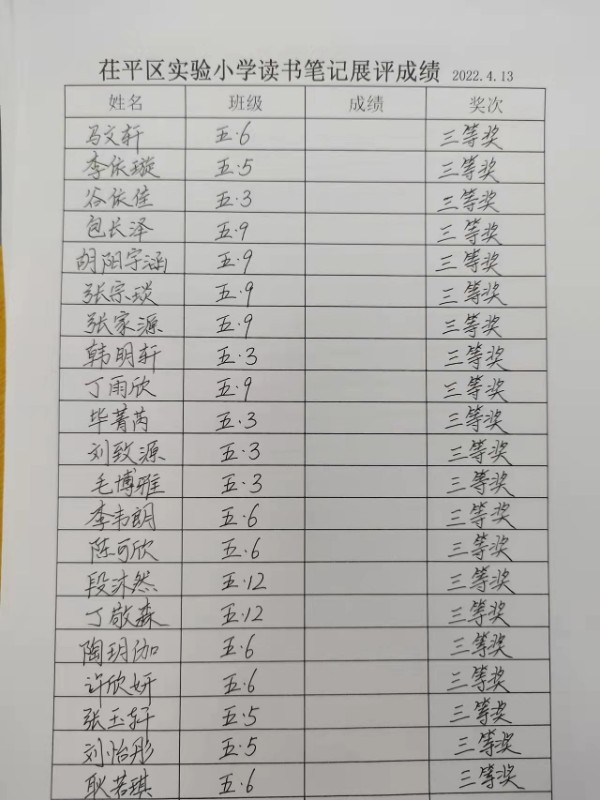 茌平区实验小学读书笔记展评成绩 2022.4.13
姓名 班级 成绩 奖次
冯文轩 五.6 三等奖
李依璇 五.5 三等奖
谷依佳 五.3 三等奖
包长泽 五.9 三等奖
胡阳宇涵 五.9 三等奖
张宗琰 五.9 三等奖
张家源 五.9 三等奖
韩明轩 五.3 三等奖
丁雨欣 五.9 三等奖
毕菁芮 五.3 三等奖
刘致源 五.3 三等奖
毛博雅 五.3 三等奖
李韦朗 五.6 三等奖
陈可欣 五.6 三等奖
段沐然 五.12 三等奖
丁敬森 五.12 三等奖
陶玥伽 五.6 三等奖
许欣妍 五.6 三等奖
张玉轩 五.5 三等奖
刘怡彤 五.5 三等奖
耿若琪 五.6 三等奖